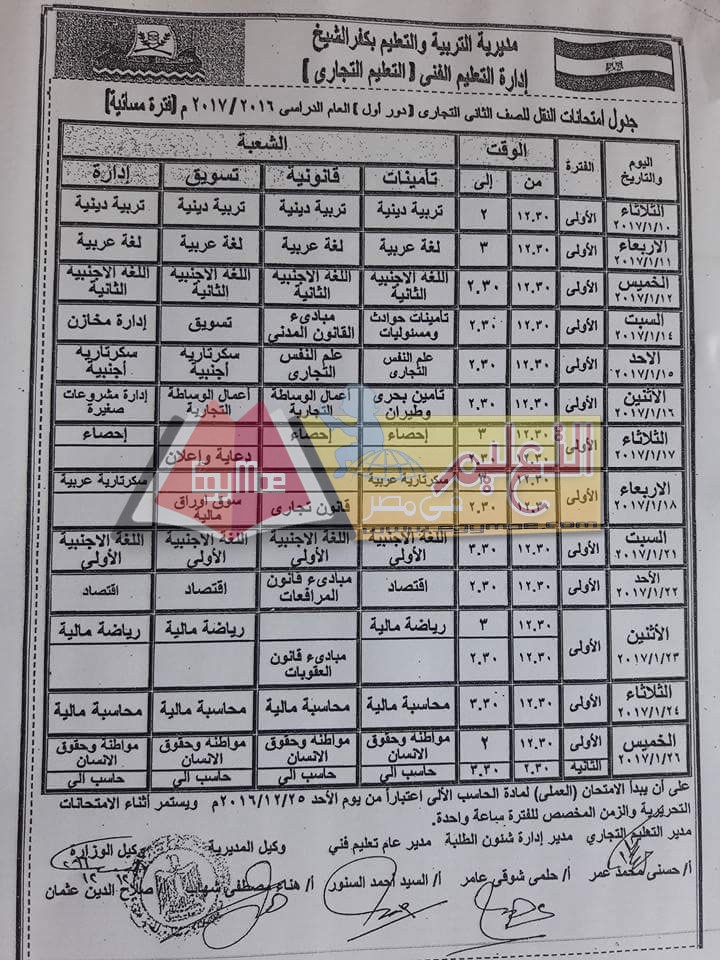 مديرية التربية والتعليم بكفر الشيخ
إدارة التعليم الفنى [ التعليم التجارى ]
جدول امتحانات النقل للصف الثانى التجارى [ دور أول ] العام الدراسى ٢٠١٦/ ٢٠١٧ م [فترة مسائية]
اليوم والتاريخ الفترة الوقت الشعبة
من إلى تأمينات قانونية تسويق إدارة
الثلاثاء ٢٠١٧/١/١٠ الأولى ١٢.٣٠ ٢ تربية دينية تربية دينية تربية دينية تربية دينية
الاربعاء ٢٠١٧/١/١١ الأولى ١٢.٣٠ ٣ لغة عربية لغة عربية لغة عربية لغة عربية
الخميس ٢٠١٧/١/١٢ الأولى ١٢.٣٠ ٢.٣٠ اللغه الاجنبيه الثانية اللغه الاجنبيه الثانية اللغه الاجنبيه الثانية اللغه الاجنبيه الثانية
السبت ٢٠١٧/١/١٤ الأولى ١٢.٣٠ ٢.٣٠ تأمينات حوادث ومسئوليات مبادىء القانون المدني تسويق إدارة مخازن
الاحد ٢٠١٧/١/١٥ الأولى ١٢.٣٠ ٢.٣٠ علم النفس التجارى علم النفس التجارى سكرتاريه أجنبية سكرتاريه أجنبية
الاثنين ٢٠١٧/١/١٦ الأولى ١٢.٣٠ ٢.٣٠ تامين بحرى وطيران أعمال الوساطة التجارية أعمال الوساطة التجارية إدارة مشروعات صغيرة
الثلاثاء ٢٠١٧/١/١٧ الأولى ١٢.٣٠ ٣ إحصاء إحصاء إحصاء
١٢.٣٠ ٢.٣٠ دعاية وإعلان
الاربعاء ٢٠١٧/١/١٨ الأولى ١٢.٣٠ سكرتارية عربية سكرتارية عربية
١٢.٣٠ ٢.٣٠ قانون تجارى سوق أوراق مالية
السبت ٢٠١٧/١/٢١ الأولى ١٢.٣٠ ٣.٣٠ اللغة الاجنبية الأولى اللغة الاجنبية الأولى اللغة الاجنبية الأولى اللغة الاجنبية الأولى
الأحد ٢٠١٧/١/٢٢ الأولى ١٢.٣٠ ٢.٣٠ اقتصاد مبادىء قانون المرافعات اقتصاد اقتصاد
الأثنين ٢٠١٧/١/٢٣ الأولى ١٢.٣٠ ٣ رياضة مالية رياضة مالية رياضة مالية
١٢.٣٠ ٢.٣٠ مبادىء قانون العقوبات
الثلاثاء ٢٠١٧/١/٢٤ الأولى ١٢.٣٠ ٣.٣٠ محاسبة مالية محاسبة مالية محاسبة مالية محاسبة مالية
الخميس ٢٠١٧/١/٢٦ الأولى ١٢.٣٠ ٢ مواطنة وحقوق الانسان مواطنة وحقوق الانسان مواطنة وحقوق الانسان مواطنة وحقوق الانسان
الثانية ٢.٣٠ ٣.٣٠ حاسب الي حاسب الي حاسب الي حاسب الي
على أن يبدأ الامتحان (العملى) لمادة الحاسب الألى اعتباراً من يوم الأحد ٢٠١٦/١٢/٢٥م ويستمر أثناء الامتحانات
التحريرية والزمن المخصص للفترة ساعة واحدة.
مدير التعليم التجاري مدير إدارة شئون الطلبة مدير عام تعليم فني وكيل المديرية وكيل الوزارة
أ/ حسنى محمد عمر أ/ حلمى شوقى عامر أ/ السيد أحمد السنور أ/ هناء مصطفى شهاب صلاح الدين عثمان
التعليم فى مصر
EayMoe
www.eaymoe.com